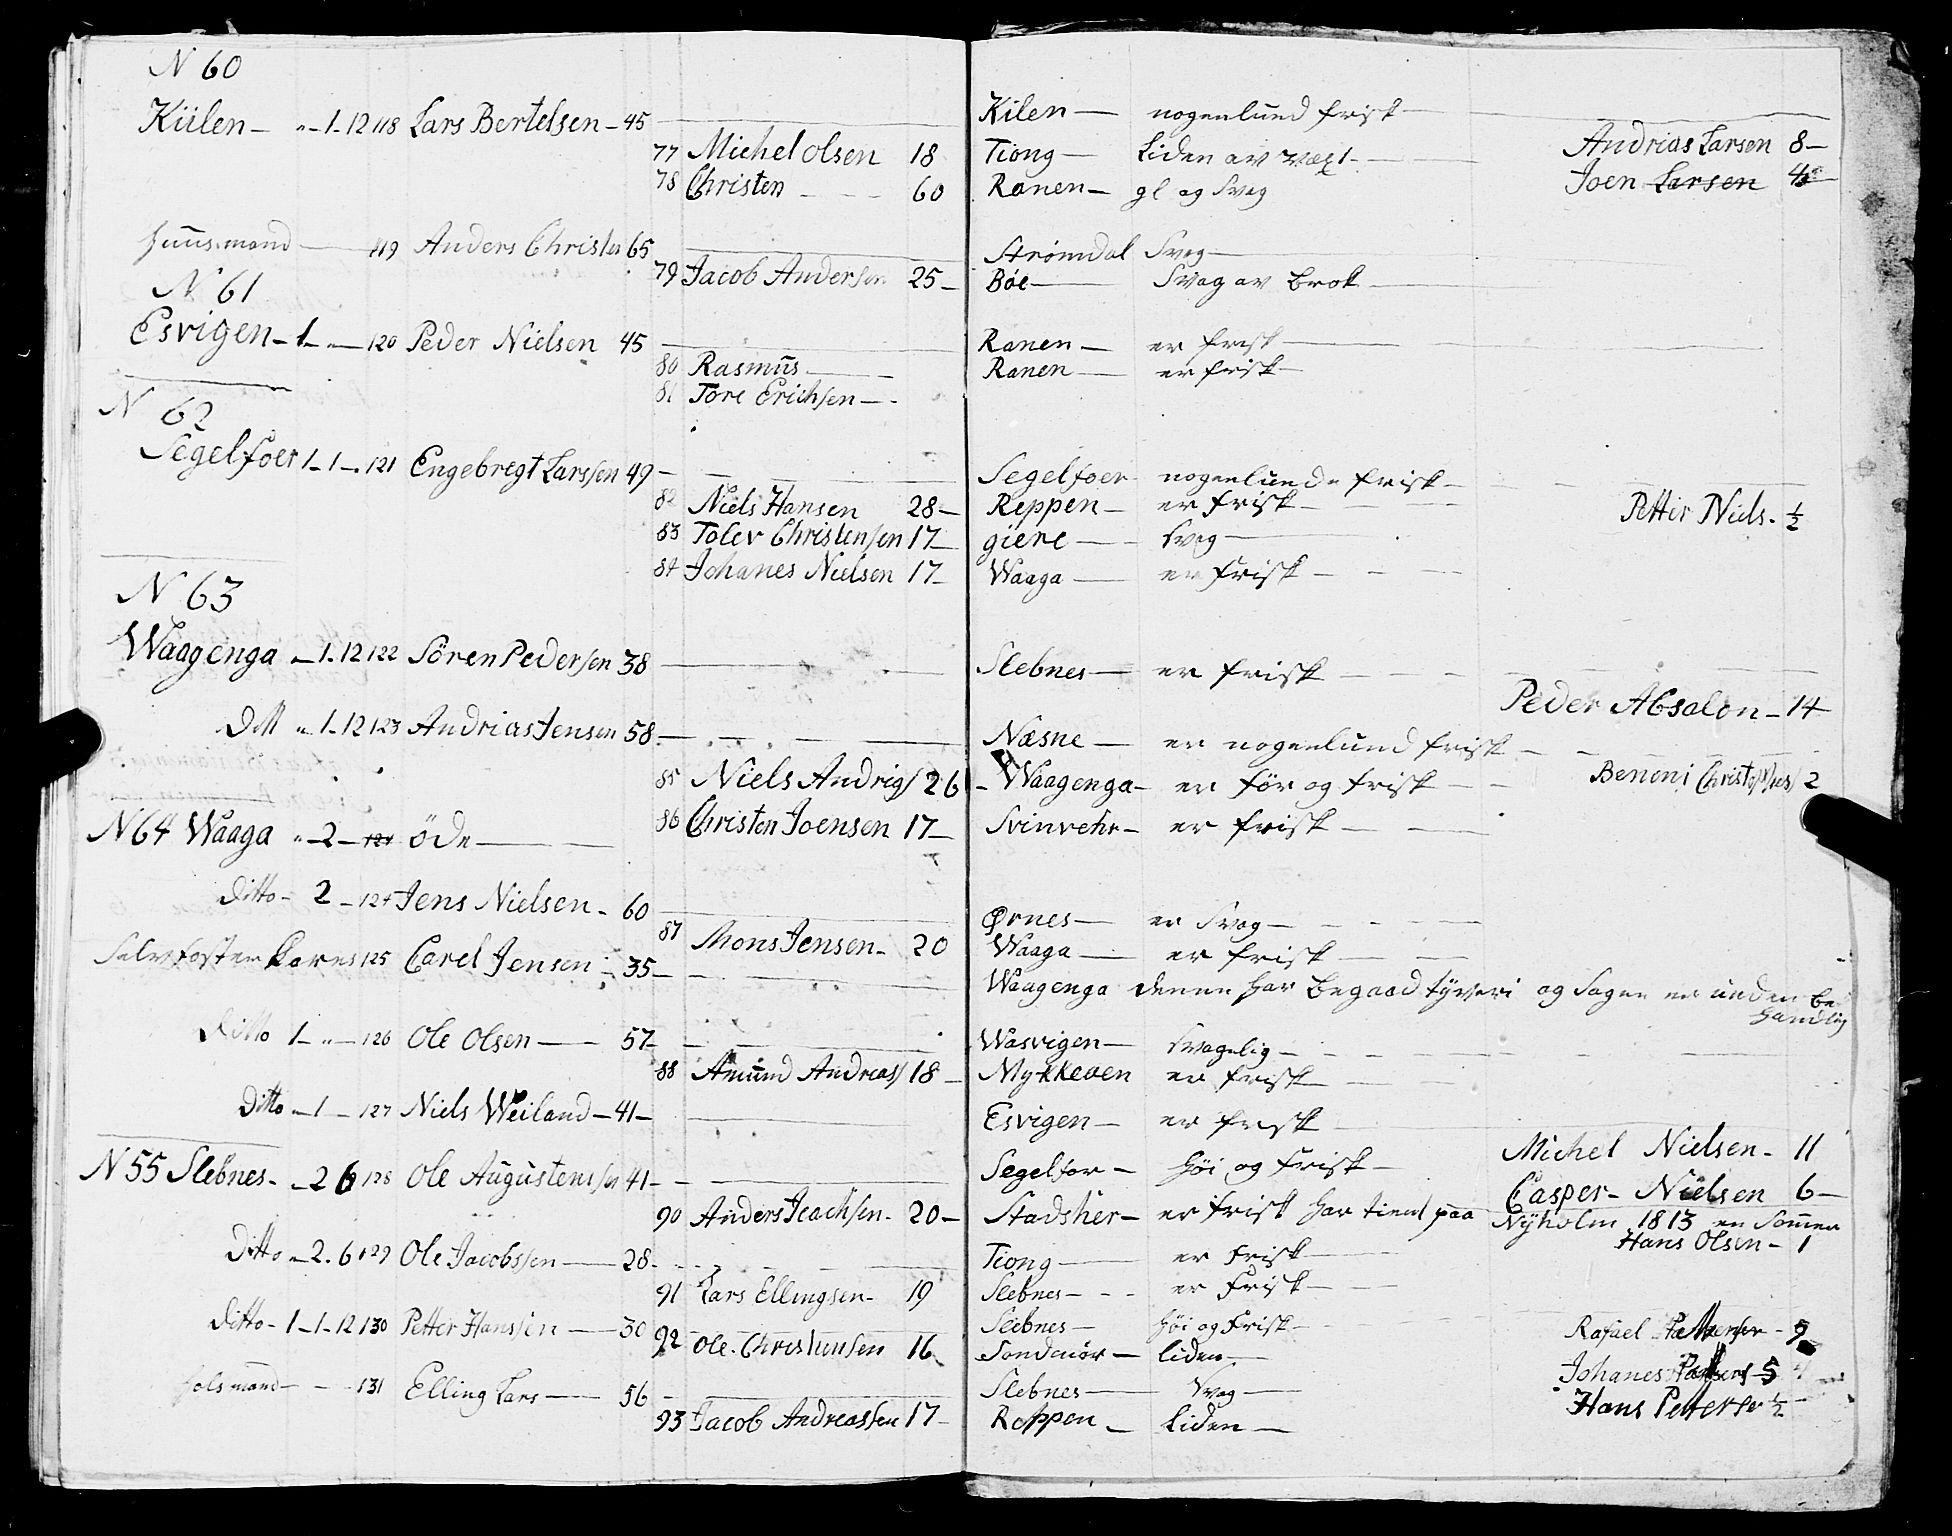 N 60
Kiilen — „ — 1 - 12 118 Lars Bertelsen — 45 — Kilen — nogenlund frisk —
77 Michel Olsen 18 Tiong — Liden av væxt — Andrias Larsen 8 —
78 Christen — 60 Ranen — gl og Svag Joen Larsen 4
huusmand — 119 Anders Christen 65 — Strömdal Svag —
79 Jacob Andersen 25 — Böe — Svag av brok —
N 61
Esvigen — 1 — „ — 120 Peder Nielsen 45 — Ranen — er frisk —
80 Rasmus — Ranen — er frisk —
81 Tore Erichsen —
N 62
Segelfoer 1 — 1 — . 121 Engebregt Larssen 49 — Segelfoer nogenlunde frisk —
82 Niels Hansen 28 — Reppen — er frisk — Petter Niels. ½
83 Tolev Christensen 17 — giere — Svag —
84 Johanes Nielsen 17 — Waaga — er frisk —
N 63
Waagenga „ — 1. 12 122 Sören Pedersen 38 — Slebnes — er frisk —
Peder Absalon — 14
Ditt „ — 1. 12 123 Andrias Jensen 58 — Næsne — er nogenlund frisk —
85 Niels Andrias 26 — Waagenga — er för og frisk — Benoni 2
86 Christen Joensen 17 — Svinvehr — er frisk —
N 64 Waaga „ — 2 — 124 öde —
Ditto — 2 — 124 Jens Nielsen — 60 — Ørnes — er Svag —
87 Mons Jensen — 20 Waaga — er frisk —
125 Carel Jensen — 35 — Waagenga denne har begaad tyveri og Sagen er under be
handlig
Ditto 1 — „ — 126 Ole Olsen — 57 — Wasvigen — svagelig —
88 Amund Andreas 18 — Mykkeven er frisk —
Ditto — 1 — 127 Niels Weiland — 41 — Esvigen — er frisk —
Michel Nielsen — 11
N 55 Slebnes — „ — 2 6 128 Ole Augustenssen 41 — Segelfor — höi og frisk —
Casper — Nielsen 6 —
90 Anders Joachsen — 20 — Stadsher — er frisk har tient paa Nyholm 1813 en Sommer
Hans Olsen — 1
Ditto — 2. 6 129 Ole Jacobssen — 28 — Tiong — er frisk —
91 Lars Ellingsen — 19 Slebnes — er frisk —
Ditto — 1 — 1 — 12 130 Petter Hanssen — 30 — Slebnes — höi og frisk — Rafael
92 Ole Christensen 16 Sondmör — liden —
Johanes 5
131 Elling Lars — 56 — Slebnes — Svag —
Hans Petterse ½
93 Jacob Andreassen 17 — Reppen — liden —